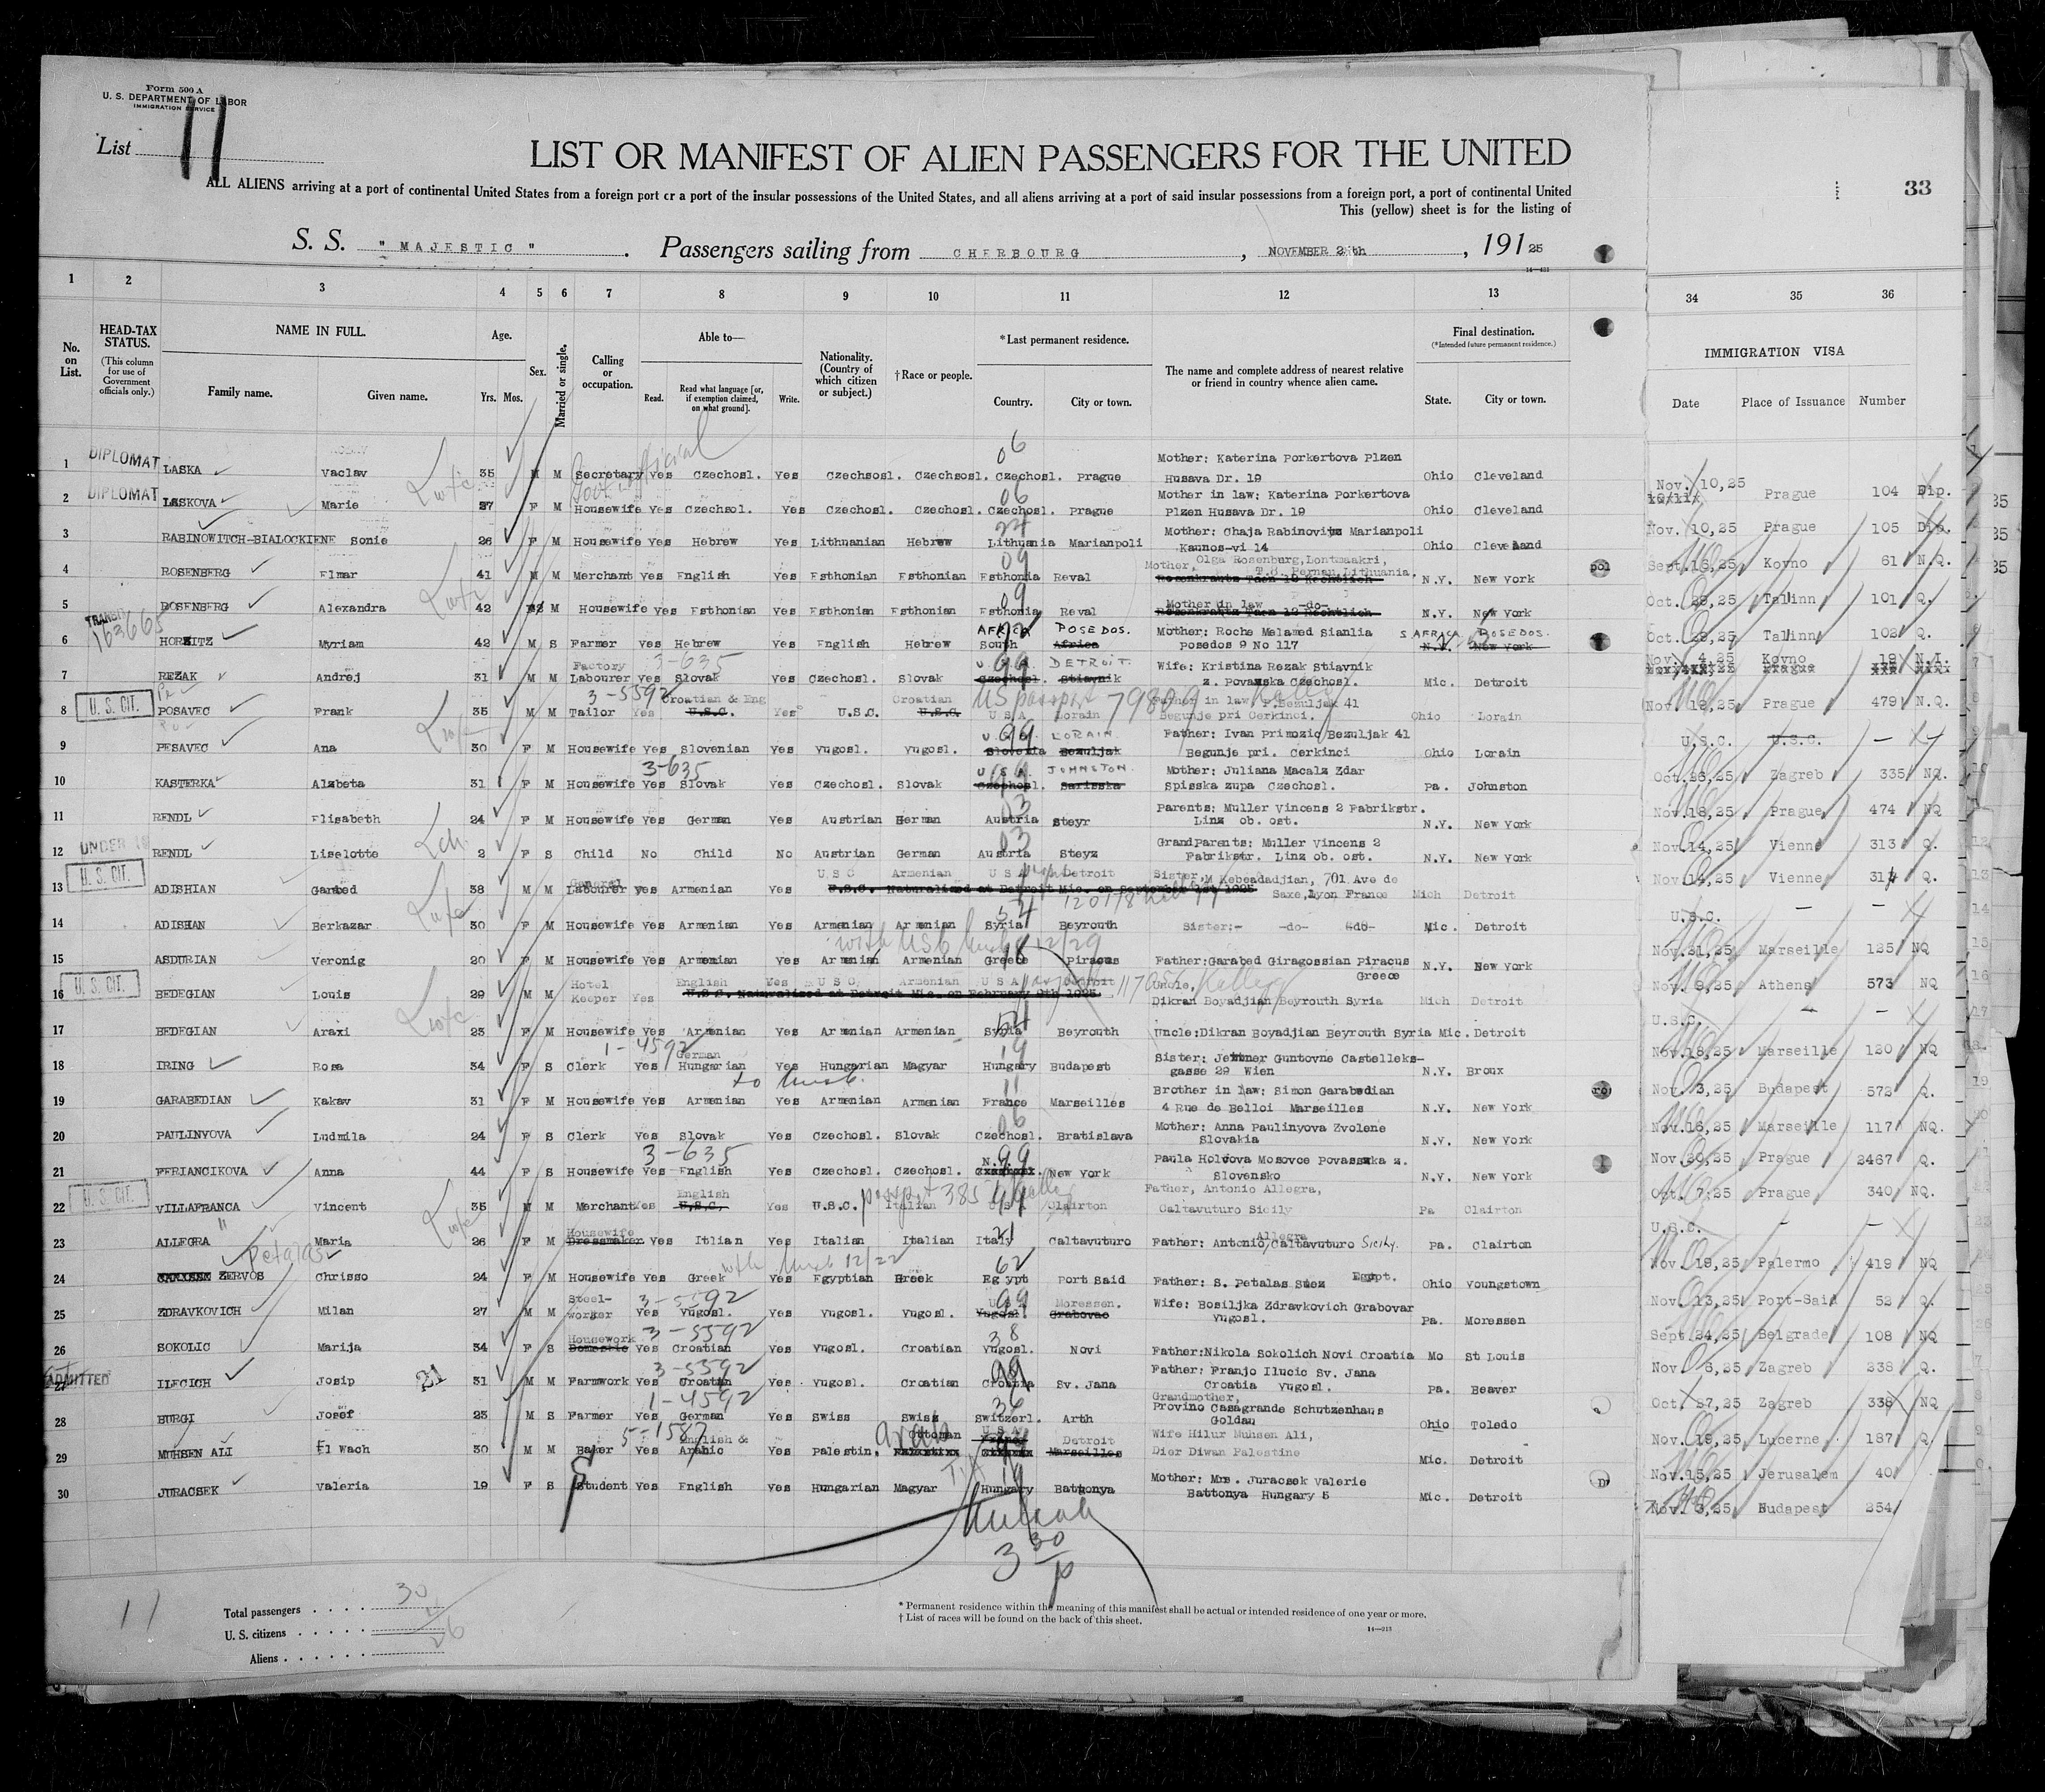 Form 500 A
U. S. DEPARTMENT OF LABOR
IMMIGRATION SERVICE
List 11
LIST OR MANIFEST OF ALIEN PASSENGERS FOR THE UNITED
33
ALL ALIENS arriving at a port of continental United States from a foreign port or a port of the insular possessions of the United States, and all aliens arriving at a port of said insular possessions from a foreign port, a port of continental United
This (yellow) sheet is for the listing of
S. S. "MAJESTIC". Passengers sailing from CHERBOURG, NOVEMBER 2 th, 19125
14-421
1 2 3 4 5 6 7 8 9 10 11 12 13 34 35 36
No. on List. HEAD-TAX STATUS. (This column for use of Government officials only.) NAME IN FULL. Family name. Given name. Age. Yrs. Mos. Sex. Married or single. Calling or occupation. Able to— Read. Read what language [or, if exemption claimed, on what ground]. Write. Nationality. (Country of which citizen or subject.) †Race or people. *Last permanent residence. Country. City or town. The name and complete address of nearest relative or friend in country whence alien came. Final destination. (*Intended future permanent residence.) State. City or town. IMMIGRATION VISA Date Place of Issuance Number
1 DIPLOMAT LASKA Vaclav 35 M M Secretary Yes Czechosl. Yes Czechsosl. Czechsosl. Czechosl. Prague Mother: Katerina Porkertova Plzen Husava Dr. 19 Ohio Cleveland
Nov. 10,25 Prague 104 Dip.
2 DIPLOMAT LASKOVA Marie 27 F M Housewife Yes Czechsol. Yes Czechosl. Czechosl. Czechosl. Prague Mother in law: Katerina Porkertova Plzen Husava Dr. 19 Ohio Cleveland
Nov. 10,25 Prague 105 Dip.
3 RABINOWITCH-BIALOCKIENE Sonie 26 F M Housewife Yes Hebrew Yes Lithuanian Hebrew Lithuania Marianpoli Mother: Chaja Rabinovitz Marianpoli Kaunos-vi 14 Ohio Cleveland
Sept.16,25 Kovno 61 N.Q.
4 ROSENBERG Elmar 41 M M Merchant Yes English Yes Esthonian Esthonian Esthonia Reval Mother, Olga Rosenburg, Lontmaakri, T.8. Pernau, Lithuania. Rosenkrantz Taen 12 Rechtlich N.Y. New York
Oct. 29,25 Talinn 101 Q.
5 ROSENBERG Alexandra 42 M Housewife Yes Esthonian Yes Esthonian Esthonian Esthonia Reval Mother in law -do- Rosenkrantz Taen 12 Rechtlich N.Y. New York
Oct. 29,25 Talinn 102 Q.
6 TRANSIT 163665 HORWITZ Myriam 42 M S Farmer Yes Hebrew Yes English Hebrew AFRICA South POSEDOS. Africa Mother: Roche Melamed Sianlia posedos 9 No 117 S. AFRICA POSEDOS. N.Y. New York
Nov. 4,25 Kovno 19 N.I.
7 REZAK Andrej 31 M M Factory Labourer Yes Slovak Yes Czechosl. Slovak U.S.A. DETROIT. Czechosl. Stiavnik Wife: Kristina Rezak Stiavnik z. Povazska Czechosl. Mic. Detroit
3-635
Nov. 12,25 Prague 479 N.Q.
8 U. S. CIT. POSAVEC Frank 35 M M Tailor Yes Croatian & Eng U.S.C. Yes U.S.C. Croatian U.S.C. U.S.A. Lorain Father in law, F.Bezuljak 41 Begunje pri Cerkinci. Ohio Lorain
3-5592 US passport 79809
U.S.C. U.S.C. —
9 PESAVEC Ana 30 F M Housewife Yes Slovenian Yes Yugosl. Yugosl. U.S.A. LORAIN. Slovenia Bezuljak Father: Ivan Primozic Bezuljak 41 Begunje pri. Cerkinci Ohio Lorain
Oct.26,25 Zagreb 335 NQ.
10 KASTERKA Alzbeta 31 F M Housewife Yes Slovak Yes Czechosl. Slovak U.S.A. JOHNSTON. Czechosl. Sarisska Mother: Juliana Macalz Zdar Spisska zupa Czechosl. Pa. Johnston
3-635
Nov.18,25 Prague 474 NQ
11 RENDL Elisabeth 24 F M Housewife Yes German Yes Austrian German Austria Steyr Parents: Muller Vincens 2 Fabrikstr. Linz ob. ost. N.Y. New York
Nov.14,25 Vienne 313 Q.
12 UNDER 16 RENDL Liselotte 2 F S Child No Child No Austrian German Austria Steyz GrandParents: Muller Vincens 2 Fabrikstr. Linz ob. ost. N.Y. New York
Nov.14,25 Vienne 314 Q.
13 U. S. CIT. ADISHIAN Garabed 38 M M General Labourer yes Armenian Yes U S C Armenian U S A Detroit U.S.C. Naturalized at Detroit Mic. on September 1925 Sister, M Kebeadadjian, 701 Ave de Saxe, Lyon France Mich Detroit
120118
U.S.C. — —
14 ADISHAN Berkazar 30 F M Housewife Yes Armenian Yes Armenian Armenian Syria Beyrouth Sister:- -do- -do- Mic. Detroit
Nov.21,25 Marseille 125 NQ
15 ASDURIAN Veronig 20 F M Housewife Yes Armenian Yes Armenian Armenian Greece Piraeus Father:Garabed Giragossian Piracus Greece N.Y. New York
Nov. 9,25 Athens 573 NQ
16 U. S. CIT. BEDEGIAN Louis 29 M M Hotel Keeper Yes English Yes U S C Armenian U S A Detroit U.S.C. Naturalized at Detroit Mic. on February 9th 1925. Uncle, Dikran Boyadjian Beyrouth Syria Mich Detroit
U.S.C. — —
17 BEDEGIAN Araxi 23 F M Housewife Yes Armenian Yes Armenian Armenian Syria Beyrouth Uncle:Dikran Boyadjian Beyrouth Syria Mic. Detroit
Nov.18,25 Marseille 120 NQ
18 IRING Rosa 34 F S Clerk Yes German Hungarian Yes Hungarian Magyar Hungary Budapest Sister: Jettner Guntovne Castelleks-gasse 29 Wien N.Y. Bronx
1-4592
Nov. 3,25 Budapest 572 Q.
19 GARABEDIAN Kakav 31 F M Housewife Yes Armenian Yes Armenian Armenian France Marseilles Brother in law: Simon Garabedian 4 Rue de Belloi Marseilles N.Y. New York
Nov.16,25 Marseille 117 NQ.
20 PAULINYOVA Ludmila 24 F S Clerk Yes Slovak Yes Czechosl. Slovak Czechosl. Bratislava Mother: Anna Paulinyova Zvolene Slovakia N.Y. New York
Nov.20,25 Prague 2467 Q.
21 FERIANCIKOVA Anna 44 F S Housewife Yes English Yes Czechosl. Czechosl. New York Paula Holvova Mosovce Povasska z. Slovensko N.Y. New York
3-635
Oct. 7,25 Prague 340 NQ.
22 U. S. CIT. VILLAFRANCA Vincent 35 M M Merchant Yes English U.S.C. Yes U.S.C. Italian U S A Clairton Father, Antonio Allegra, Caltavuturo Sicily Pa Clairton
U.S.C. — —
23 ALLEGRA Maria 26 F M Housewife Dressmaker Yes Itlian Yes Italian Italian Italy Caltavuturo Father: Antonio Allegra Caltavuturo Sicily. Pa. Clairton
Nov. 19,25 Palermo 419 NQ
24 Petalas ZERVOS Chrisso 24 F M Housewife Yes Greek Yes Egyptian Greek Egypt Port Said Father: S. Petalas Suez Egypt. Ohio Youngstown
Nov. 13,25 Port-Said 52 Q.
25 ZDRAVKOVICH Milan 27 M M Steel-worker Yes Yugosl. Yes Yugosl. Yugosl. Yugosl. Moressen. Grabovac Wife: Bosiljka Zdravkovich Grabovar Yugosl. Pa. Moressen
3-5592
Sept.24,25 Belgrade 108 NQ
26 SOKOLIC Marija 34 F S Housework Domestic Yes Croatian Yes Yugosl. Croatian Yugosl. Novi Father:Nikola Sokolich Novi Croatia Mo St Louis
3-5592
Nov 6,25 Zagreb 238 Q.
27 ADMITTED ILECICH Josip 21 31 M M Farmwork Yes Croatian Yes Yugosl. Croatian Croatia Sv. Jana Father: Franjo Ilucic Sv. Jana Croatia Yugosl. Pa. Beaver
3-5592
Oct. 27,25 Zagreb 338 NQ
28 BURGI Josef 23 M S Farmer Yes German Yes Swiss Swiss Switzerl. Arth Grandmother, Provino Casagrande Schutzenhaus Goldau Ohio Toledo
1-4592
Nov. 19,25 Lucerne 187 Q.
29 MUHSEN ALI El Wach 30 M M Baker Yes English & Arabic Yes Palestin. Arab Ottoman Detroit Marseilles Wife Hilur Muhsen Ali, Dier Diwan Palestine Mic. Detroit
5-1587
Nov.15,25 Jerusalem 40
30 JURACSEK Valeria 19 F S Student Yes English Yes Hungarian Magyar Hungary Battonya Mother: Mrs. Juracsek Valerie Battonya Hungary 5 Mic. Detroit
Nov. 3,25 Budapest 254
3 30 p
11
Total passengers . . . . 30
U. S. citizens . . . . .
Aliens . . . . . . 26
* Permanent residence within the meaning of this manifest shall be actual or intended residence of one year or more.
† List of races will be found on the back of this sheet.
14-213